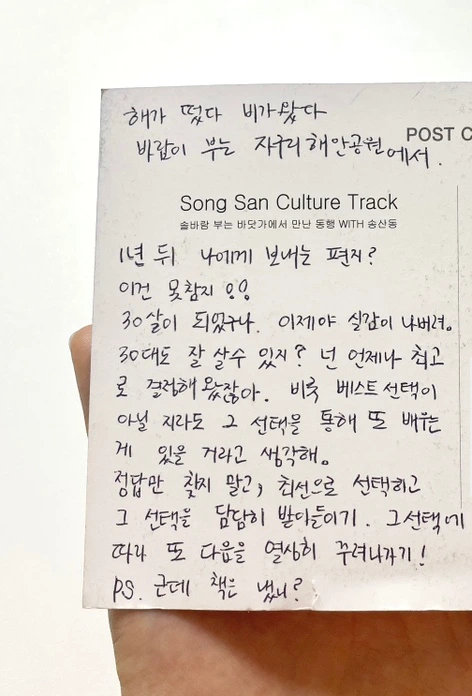 해가 떴다 비가왔다
바람이 부는 자구리해안공원에서.
POST C
Song San Culture Track
솔바람 부는 바닷가에서 만난 동행 WITH 송산동
1년 뒤 나에게 보내는 편지?
이건 못참지 o!o!
30살이 되었구나. 이제야 실감이 나버려.
30대도 잘 살수 있지? 넌 언제나 최고
로 결정해왔잖아. 비록 베스트 선택이
아닐 지라도 그 선택을 통해 또 배우는
게 있을 거라고 생각해.
정답만 찾지 말고, 최선으로 선택하고
그 선택을 담담히 받아들이기. 그선택에
따라 또 다음을 열심히 꾸려나가기!
PS. 근데 책은 냈니?